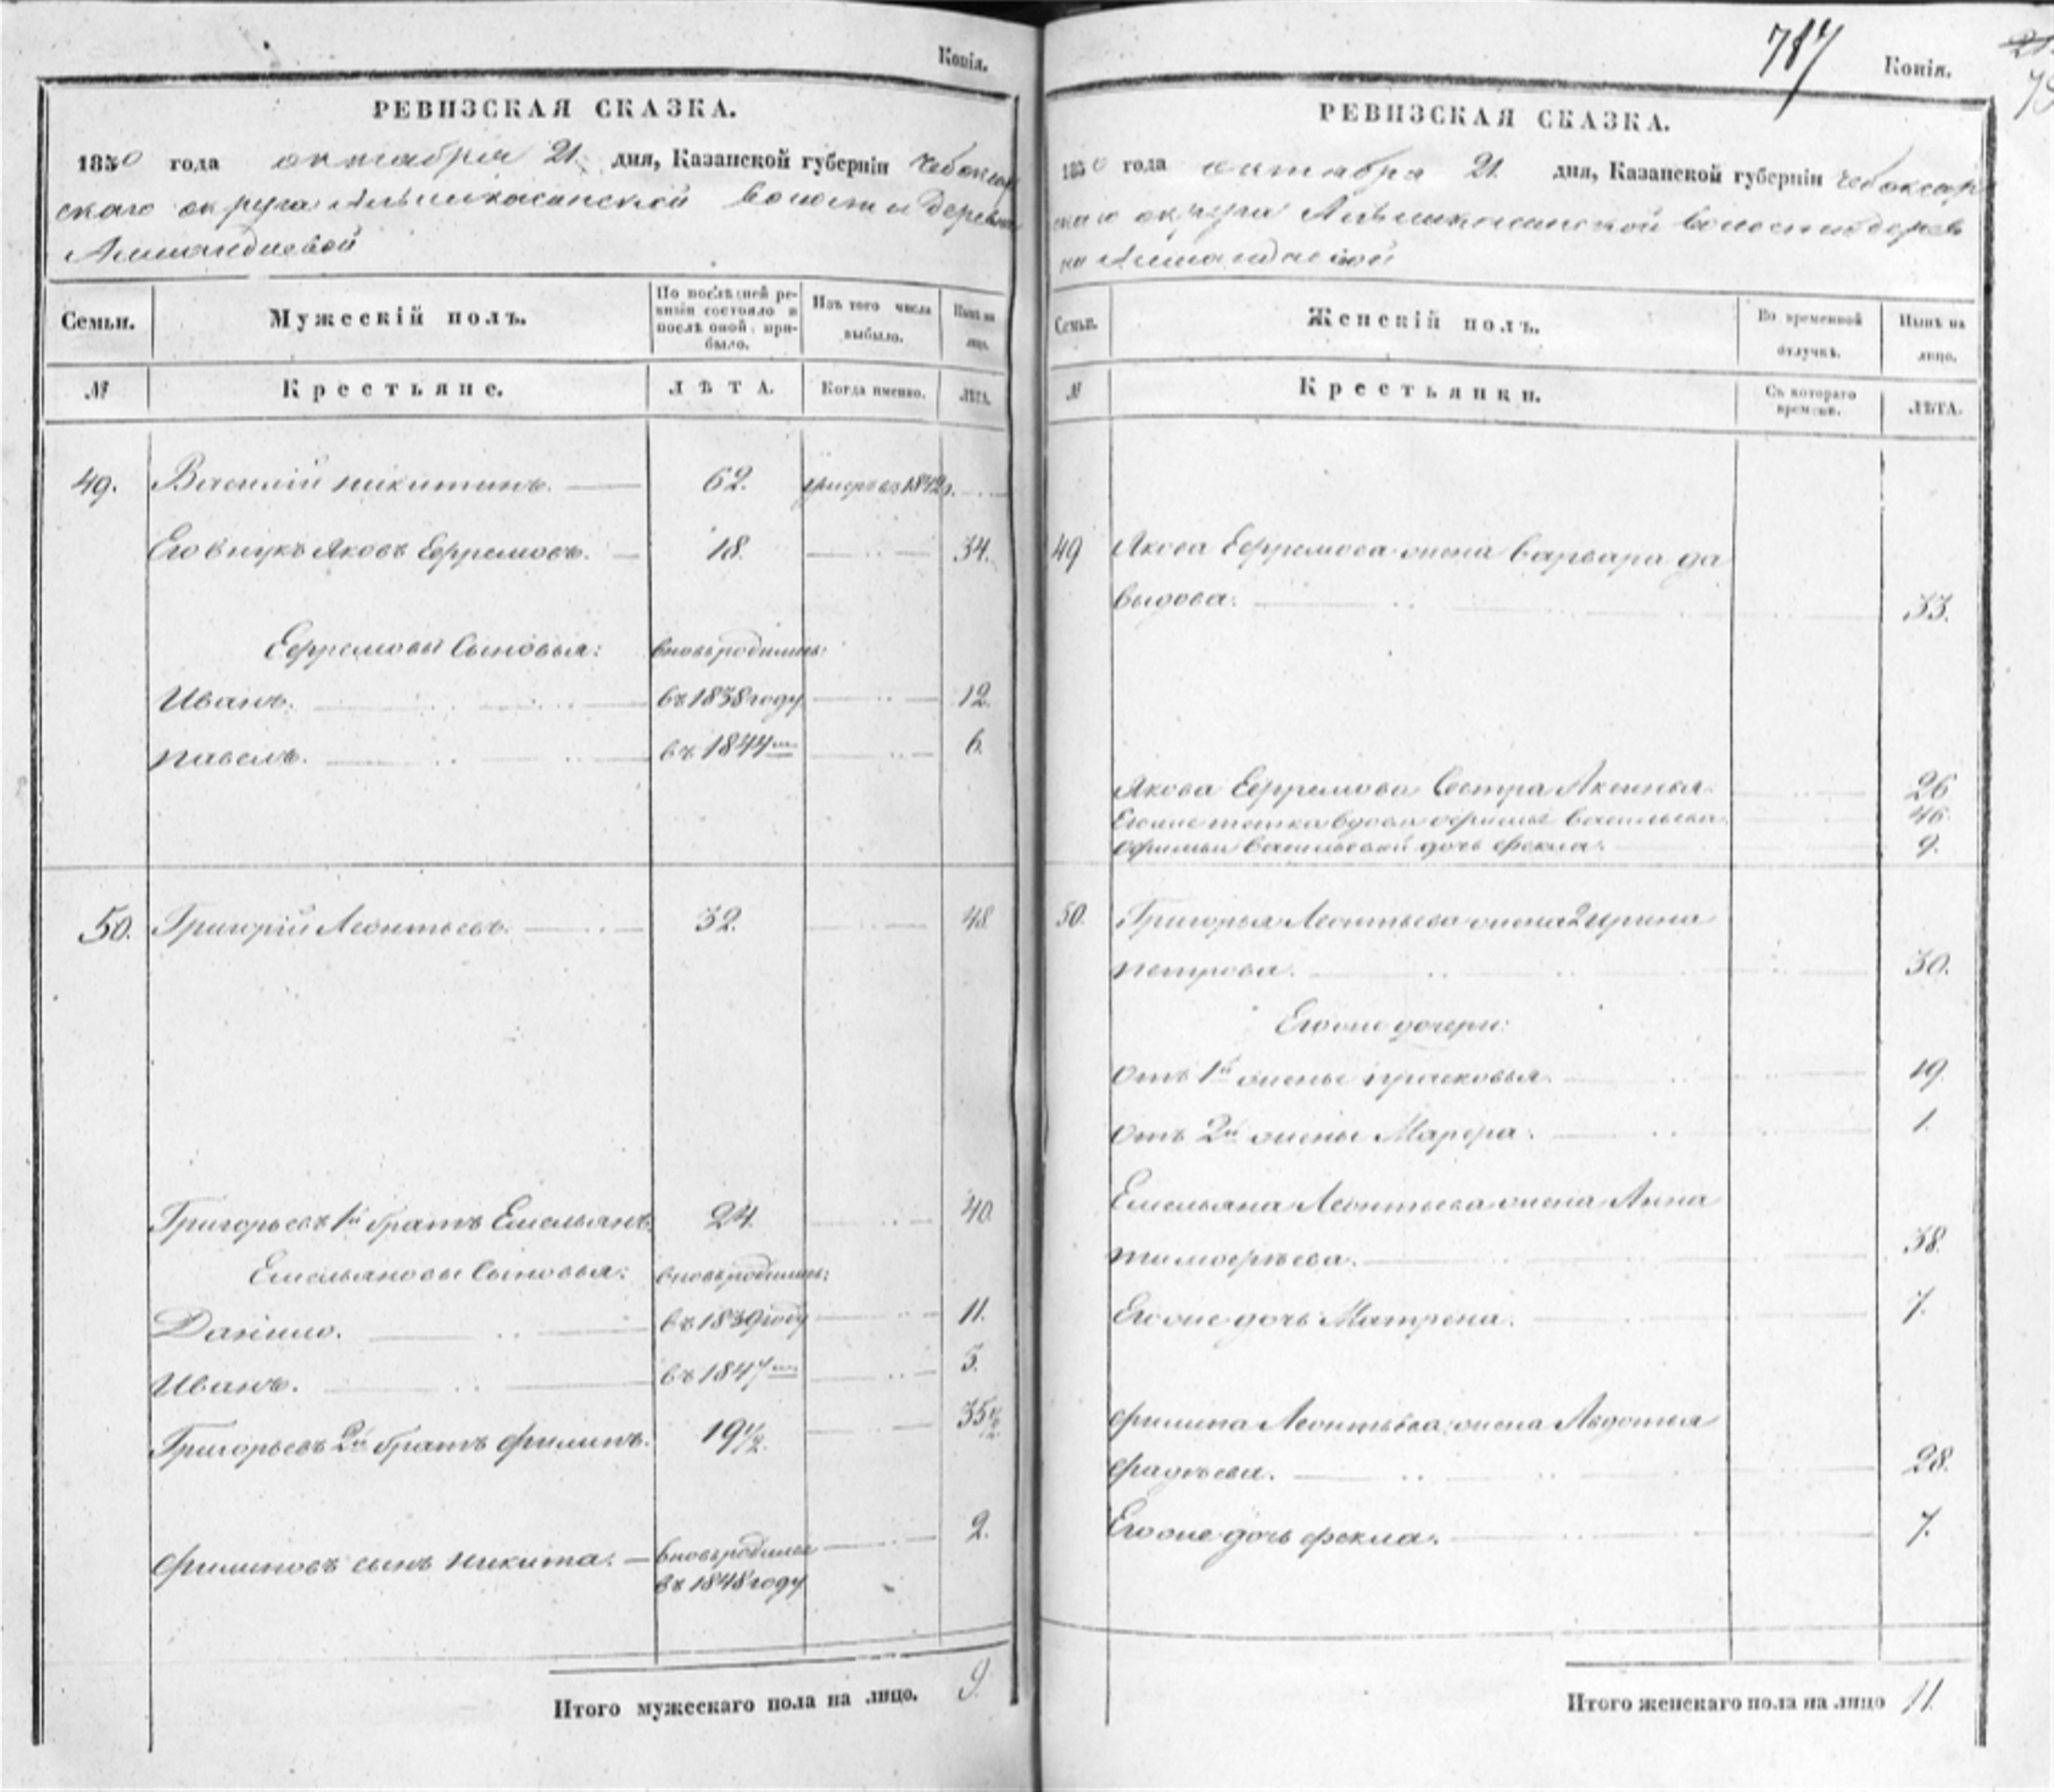 Копія.
РЕВИЗСКАЯ СКАЗКА.
1850 года октября 21 дня, Казанской губерніи Чебоксар
скаго округа Алымкасинской волости деревни
Семьи.
Мужескій полъ.
По послѣдней ре-
визіи состояло и
послѣ оной при-
было.
Изъ того числа
выбыло.
Нынѣ на
лицо.
№
Крестьяне.
ЛѢТА.
Когда именно.
ЛѢТА.
49. Василій Никитинъ. 62. умеръ въ 1842 г.
Его внукъ Яковъ Ефремовъ. 18. 34.
Ефремовы сыновья: вновь родились:
Иванъ. въ 1838 году 12.
Павелъ. въ 1844 6.
50. Григорій Леонтьевъ. 32. 48
Григорьевъ 1й братъ Емельянъ. 24. 40
Емельяновы сыновья: вновь родились:
Данило. въ 1839 году 11.
Иванъ. въ 1847 3.
Григорьевъ 2й братъ Филипъ. 19 1/2. 35 1/2
Филиповъ сынъ Никита. вновь родился 2.
въ 1848 году
Итого мужескаго пола на лицо. 9.
717
Копія.
РЕВИЗСКАЯ СКАЗКА.
1850 года октября 21 дня, Казанской губерніи Чебоксар
скаго округа Алымкасинской волости дерев
Семьи.
Женскій полъ.
Во временной
отлучкѣ.
Нынѣ на
лицо.
№
Крестьянки.
Съ котораго
времени.
ЛѢТА.
49 Якова Ефремова жена Варвара Да
выдова. 33.
Якова Ефремова сестра Аксинья. 26
Его же тетка вдова Офимья Васильева 46.
Офимьи Васильевой дочь Фекла. 9.
50. Григорья Леонтьева жена 2 Ирина
Петрова. 30.
Его же дочери:
отъ 1й жены Прасковья. 19
отъ 2й жены Марфа. 1.
Емельяна Леонтьева жена Анна
Тимофѣева. 38.
Его же дочь Матрена. 7.
Филипа Леонтьева жена Авдотья
Фадѣева. 28.
Его же дочь Фекла. 7.
Итого женскаго пола на лицо 11.